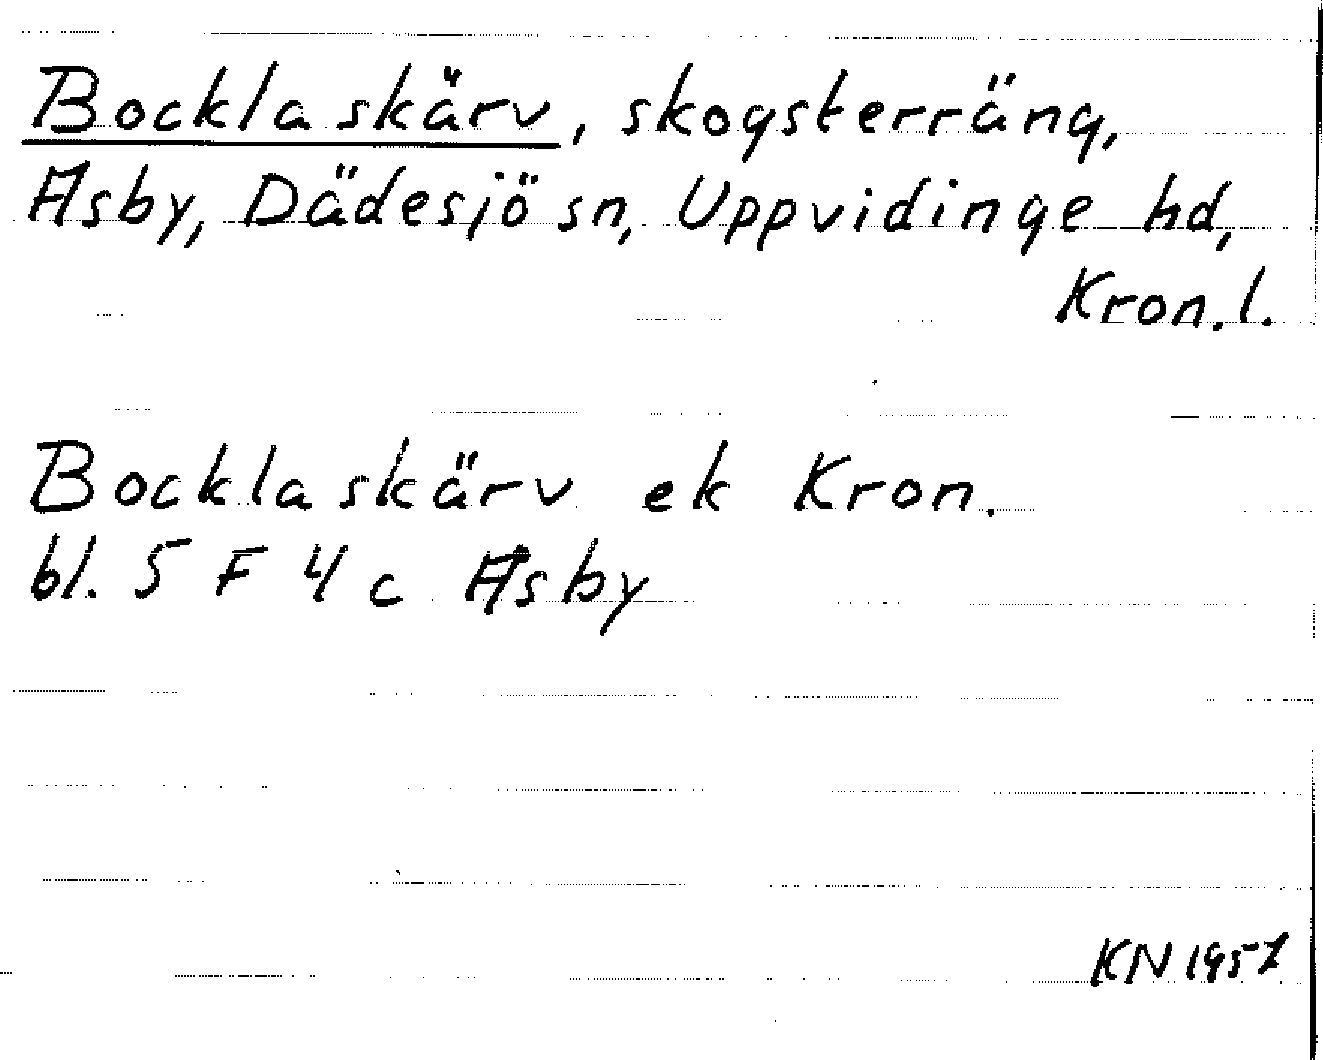 Bocklaskärv, skogsterräng,
Asby, Dädesjö sn, Uppvidinge hd,
Kron.l.
Bocklaskärv ek Kron.
bl. 5 F 4 c Asby
KN 1957